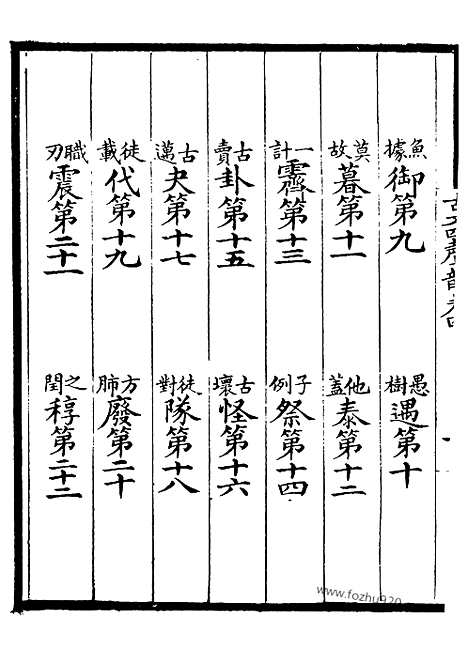 魚據御第九 愚樹遇第十
莫故暮第十一 他蓋泰第十二
一計霽第十三 子例祭第十四
古賣卦第十五 古壞怪第十六
古邁夬第十七 徒對隊第十八
徒載代第十九 方肺廢第二十
職刃震第二十一 之閏稕第二十二
www.fozhu920